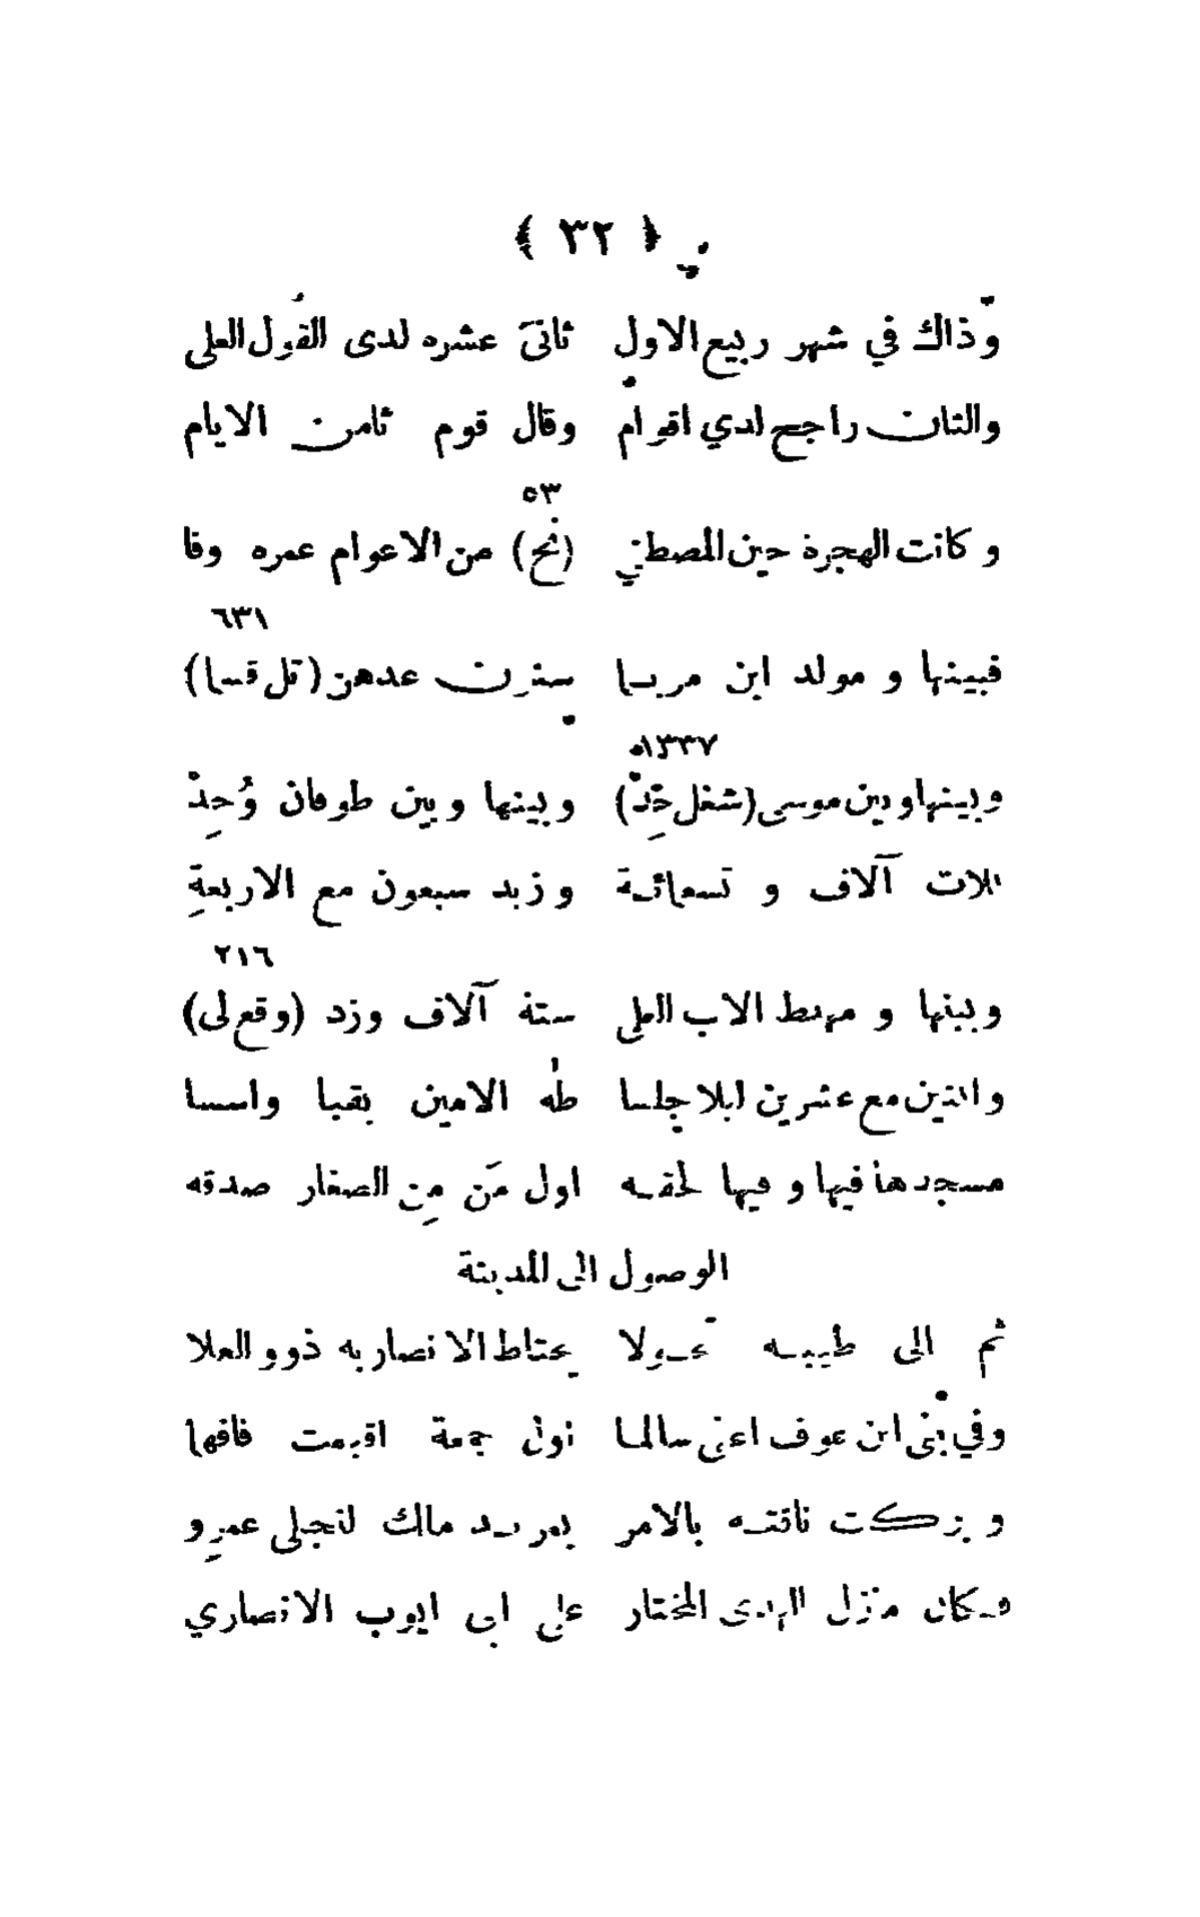 ﴿ ٣٢ ﴾
وذاك في شهر ربيع الاول ثانى عشره لدى القول العلى
والثان راجح لدي اقوام وقال قوم ثامن الايام
٥٣
وكانت الهجرة حين المصطفي (نج) من الاعوام عمره وفا
٦٣١
فبينها و مولد ابن مريما سنون عدهن (تل قسا)
١٣٣٧
وبينها وبين موسى (شغل) وبينها وبين طوفان وُجِدْ
ثلاث آلاف و تسعائة وزيد سبعون مع الاربعةِ
٢١٦
وبينها و مهبط الاب العلي ستة آلاف وزد (وقع لى)
واثنين مع عشرين ليلا جلسا طه الامين بقبا واسسا
مسجدها فيها وفيها لحقه اول مَن مِن الصغار صدقه
الوصول الى المدينة
ثم الى طيبه يحتاط الانصار به ذوو العلا
وفي بنى ابن عوف اعنى سالما اول جمعة اقيمت فافهما
وبركت ناقته بالامر بمربد مالك لنجلى عمرو
وكان منزل الهدى المختار على ابى ايوب الانصاري